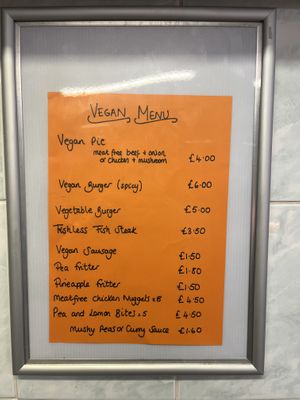 VEGAN MENU
Vegan Pie
meat free beef + onion
or chicken + mushroom £4.00
Vegan Burger (spicy) £6.00
Vegetable Burger £5.00
Fishless Fish Steak £3.50
Vegan Sausage £1.50
Pea Fritter £1.80
Pineapple Fritter £1.50
Meatfree Chicken Nuggets x8 £4.50
Pea and Lemon Bites x5 £4.50
Mushy Peas or Curry Sauce £1.60